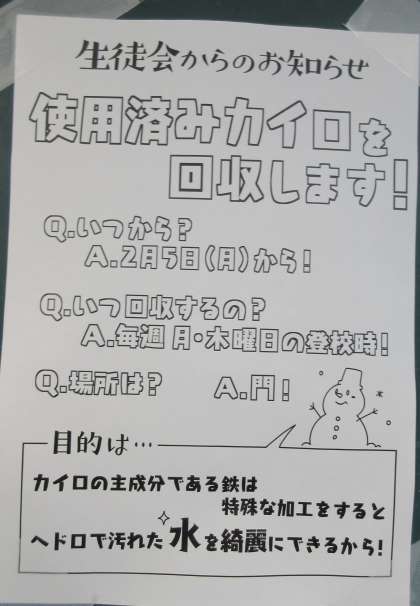 生徒会からのお知らせ
使用済みカイロを
回収します!
Q.いつから?
A.2月5日(月)から!
Q.いつ回収するの?
A.毎週 月・木曜日の登校時!
Q.場所は?
A.門!
目的は…
カイロの主成分である鉄は
特殊な加工をすると
ヘドロで汚れた水を綺麗にできるから!